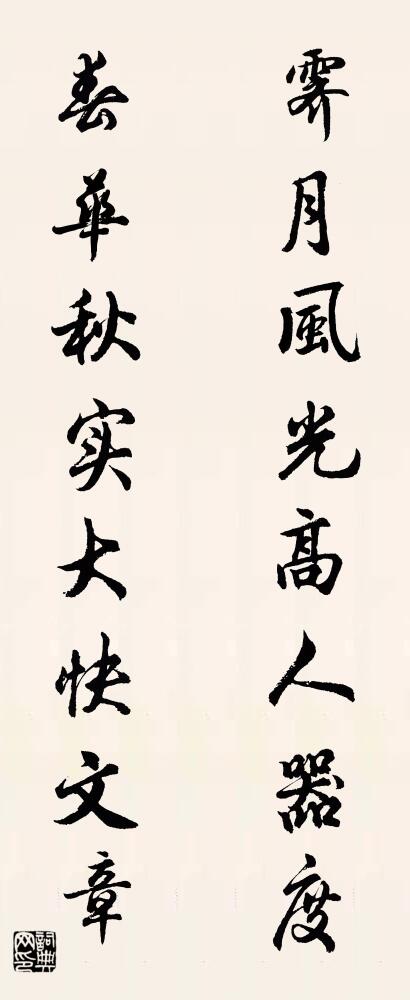 霁月風光高人器度
春華秋实大快文章
詞典網印